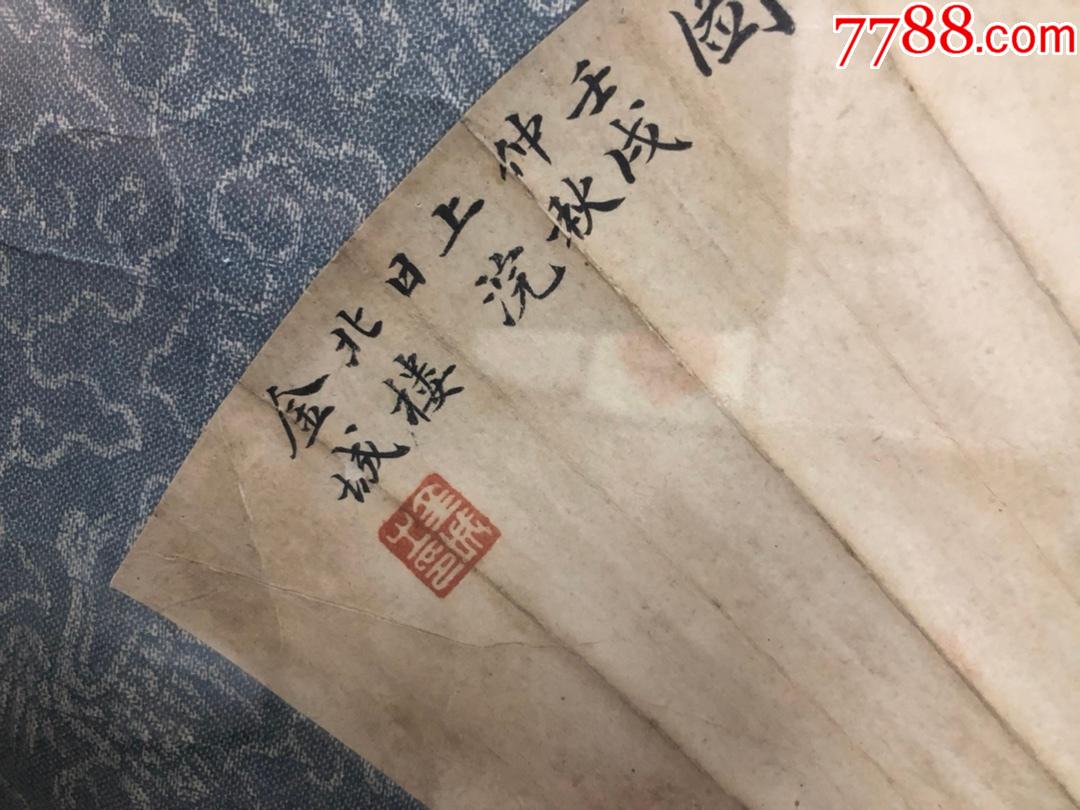 7788.com
壬戌
仲秋
上浣
日
北楼
金城